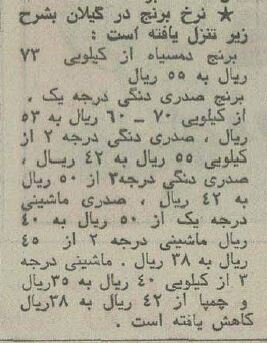 ★ نرخ برنج در گیلان بشرح
زیر تنزل یافته است :
برنج دمسیاه از کیلویی ۷۳
ریال به ۵۵ ریال
برنج صدری دنگی درجه یک ،
از کیلویی ۷۰ – ۶۰ ریال به ۵۳
ریال ، صدری دنگی درجه ۲ از
کیلویی ۵۵ ریال به ۴۲ ریال ،
صدری دنگی درجه۳ از ۵۰ ریال
به ۴۲ ریال ، صدری ماشینی
درجه یک از ۵۰ ریال به ۴۰
ریال ماشینی درجه ۲ از ۴۵
ریال به ۳۸ ریال . ماشینی درجه
۳ از کیلویی ۴۰ ریال به ۳۵ریال
و چمپا از ۴۲ ریال به ۳۸ریال
کاهش یافته است .